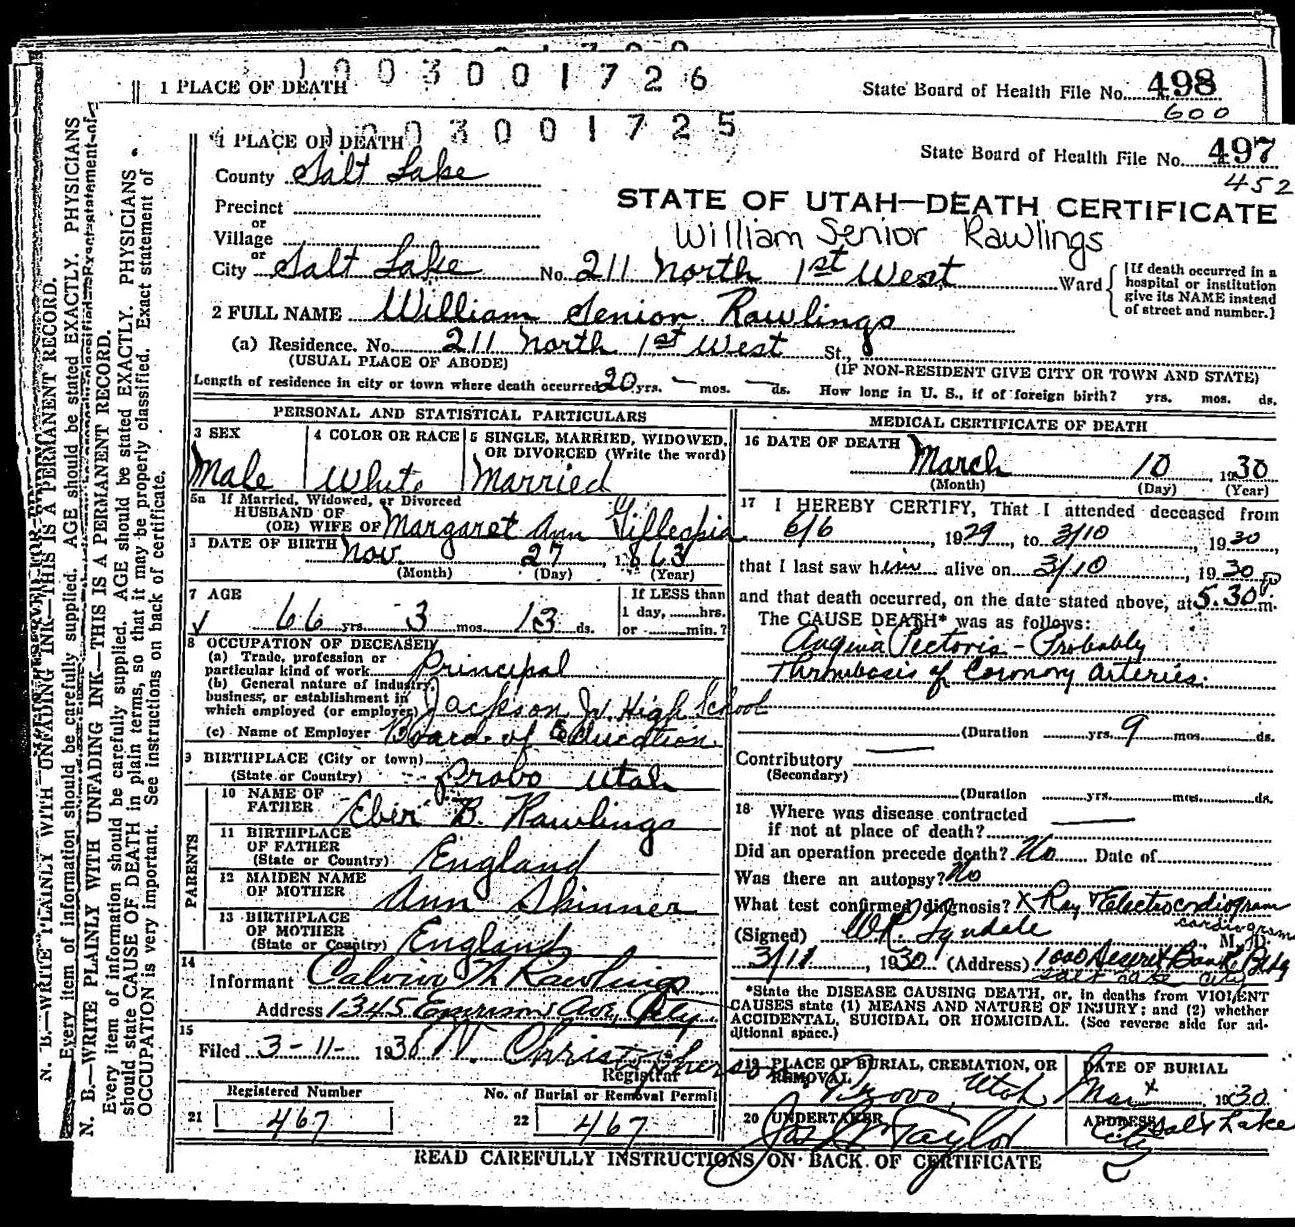 1003001726
1 PLACE OF DEATH
State Board of Health File No. 498
600
1003001725
1 PLACE OF DEATH
State Board of Health File No. 497
452
County Salt Lake
STATE OF UTAH—DEATH CERTIFICATE
Precinct
or
Village
William Senior Rawlings
or
City Salt Lake No. 211 North 1st West Ward
[If death occurred in a hospital or institution give its NAME instead of street and number.]
2 FULL NAME William Senior Rawlings
(a) Residence. No. 211 North 1st West St.,
(USUAL PLACE OF ABODE) (IF NON-RESIDENT GIVE CITY OR TOWN AND STATE)
Length of residence in city or town where death occurred 20 yrs. — mos. — ds. How long in U. S., if of foreign birth? yrs. mos. ds.
PERSONAL AND STATISTICAL PARTICULARS
3 SEX
Male
4 COLOR OR RACE
White
5 SINGLE, MARRIED, WIDOWED, OR DIVORCED (Write the word)
Married
5a If Married, Widowed, or Divorced
HUSBAND OF
(OR) WIFE OF Margaret Ann Gillespie
DATE OF BIRTH Nov. 27, 1863
(Month) (Day) (Year)
7 AGE
66 yrs. 3 mos. 13 ds.
If LESS than
1 day, hrs.
or min.?
8 OCCUPATION OF DECEASED
(a) Trade, profession or
particular kind of work Principal
(b) General nature of industry,
business, or establishment in
which employed (or employer) Jackson Jr. High School
(c) Name of Employer Board of Education
9 BIRTHPLACE (City or town)
(State or Country) Provo Utah
PARENTS
10 NAME OF
FATHER Eber B. Rawlings
11 BIRTHPLACE
OF FATHER
(State or Country) England
12 MAIDEN NAME
OF MOTHER Ann Skinner
13 BIRTHPLACE
OF MOTHER
(State or Country) England
14
Informant Calvin Rawlings
Address 1345 Emerson Ave, City
15
Filed 3-11- 1930 Christopherson
Registrar
Registered Number
21 467
No. of Burial or Removal Permit
22 467
MEDICAL CERTIFICATE OF DEATH
16 DATE OF DEATH
March 10 1930
(Month) (Day) (Year)
17 I HEREBY CERTIFY, That I attended deceased from
6/6, 1929, to 3/10, 1930,
that I last saw him alive on 3/10, 1930
and that death occurred, on the date stated above, at 5.30 P m.
The CAUSE DEATH* was as follows:
Angina Pectoris - Probably
Thrombosis of Coronary Arteries.
(Duration yrs. 9 mos. ds.
Contributory
(Secondary)
(Duration yrs. mos. ds.
18 Where was disease contracted
if not at place of death?
Did an operation precede death? No Date of
Was there an autopsy? No
What test confirmed diagnosis? X-Ray & Electrocardiogram
cardiogram
(Signed) W.R. Tyndale M. D.
3/11, 1930 (Address) 1000 Deseret Bank Bldg
Salt Lake City
*State the DISEASE CAUSING DEATH, or, in deaths from VIOLENT
CAUSES state (1) MEANS AND NATURE OF INJURY; and (2) whether
ACCIDENTAL, SUICIDAL OR HOMICIDAL. (See reverse side for ad-
ditional space.)
19 PLACE OF BURIAL, CREMATION, OR
REMOVAL
Provo, Utah
DATE OF BURIAL
Mar 1930.
20 UNDERTAKER
Taylor
ADDRESS
Salt Lake
City
READ CAREFULLY INSTRUCTIONS ON BACK OF CERTIFICATE
N. B.—WRITE PLAINLY WITH UNFADING INK—THIS IS A PERMANENT RECORD.
Every item of information should be carefully supplied. AGE should be stated EXACTLY. PHYSICIANS
N. B.—WRITE PLAINLY WITH UNFADING INK—THIS IS A PERMANENT RECORD.
Every item of information should be carefully supplied. AGE should be stated EXACTLY. PHYSICIANS
should state CAUSE OF DEATH in plain terms, so that it may be properly classified. Exact statement of
OCCUPATION is very important. See instructions on back of certificate.